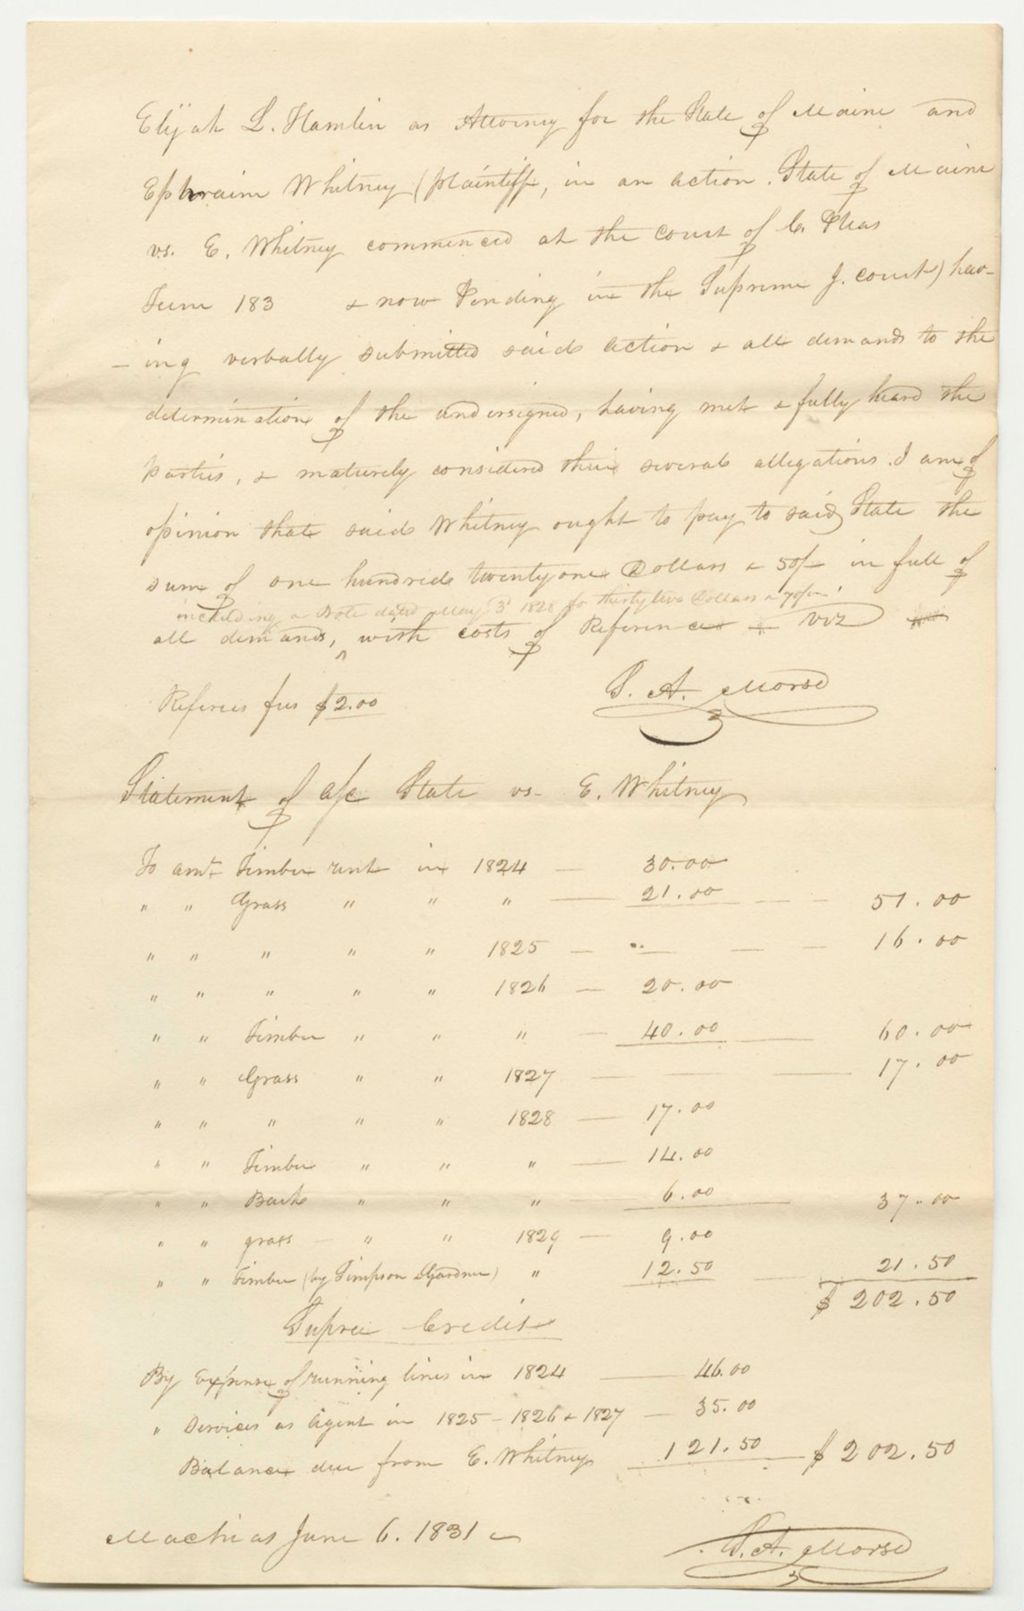 Elijah L. Hamlin as Attorney for the State of Maine and
Ephraim Whitney (plaintiff, in an action. State of Maine
vs. E. Whitney commenced at the court of C. Pleas
Term 183   & now Pending in the Supreme J. court) hav-
- ing verbally submitted said action & all demands to the
determination of the undersigned, having met & fully heard the
parties, & maturely considered their several allegations. I am of
opinion that said Whitney ought to pay to said State the
sum of one hundred twenty one Dollars & 50/ in full of
including a Note dated May 3d 1828 for thirty two Dollars & 70/
all demands, ^ with costs of Reference viz
Referees fees $2.00   S. A. Morse
Statement of a/c State vs. E. Whitney
To amt Timber rent in 1824 — 30.00
" " Grass " " " — 21.00 — - 51.00
" " " " " 1825 — - — — 16.00
" " " " " 1826 — 20.00
" " Timber " " " — 40.00 — 60.00
" " Grass " " 1827 — — — 17.00
" " " " " 1828 — 17.00
" " Timber " " " — 14.00
" " Bark " " " — 6.00 — 37.00
" " grass — " " 1829 — 9.00
" " Timber (by Simpson & Gardner) " 12.50 — 21.50
$ 202.50
Credit
By Expense of running lines in 1824 — 46.00
" Services as Agent in 1825 - 1826 & 1827 — 35.00
Balance due from E. Whitney 121.50 — $ 202.50
Machias June 6. 1831 —   S. A. Morse